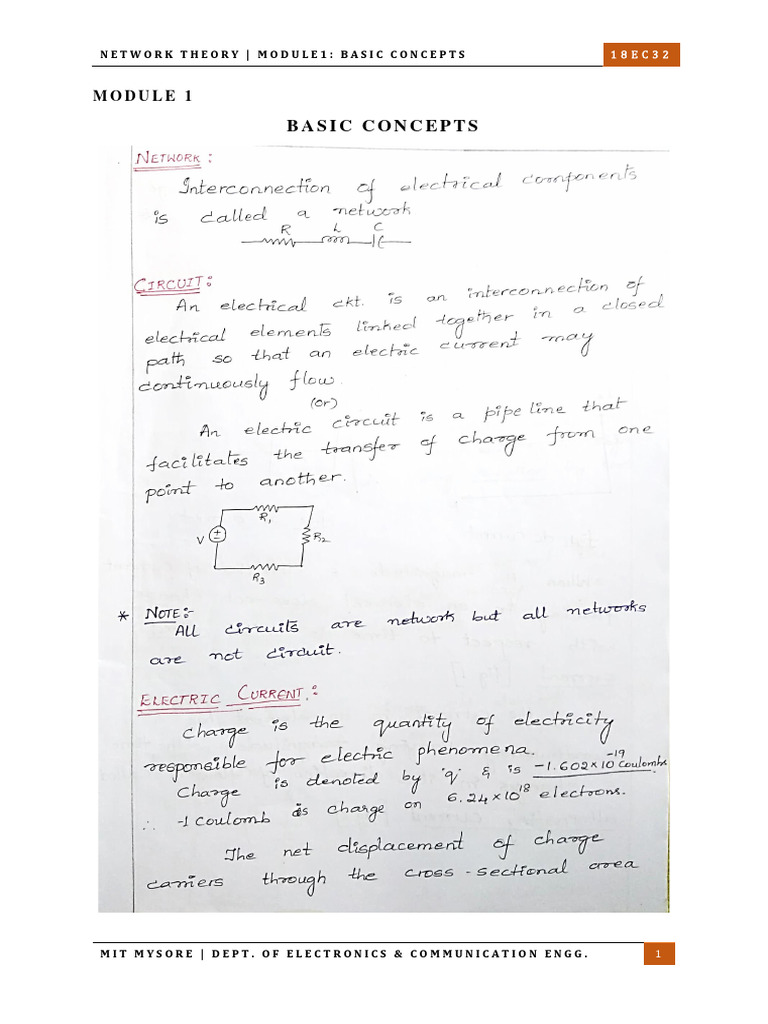 NETWORK THEORY | MODULE1: BASIC CONCEPTS 18EC32
MODULE 1
BASIC CONCEPTS
NETWORK :
Interconnection of electrical components
is called a network
R L C
CIRCUIT:
An electrical ckt. is an interconnection of
electrical elements linked together in a closed
path so that an electric current may
continuously flow.
(or)
An electric circuit is a pipe line that
facilitates the transfer of charge from one
point to another.
R1
V R2
R3
* NOTE:-
ALL circuits are network but all networks
are not circuit.
ELECTRIC CURRENT.:
Charge is the quantity of electricity
responsible for electric phenomena.
Charge is denoted by 'q' & is -1.602×10^-19 Coulombs
∴ -1 Coulomb is charge on 6.24×10^18 electrons.
The net displacement of charge
carriers through the cross-sectional area
MIT MYSORE | DEPT. OF ELECTRONICS & COMMUNICATION ENGG. 1